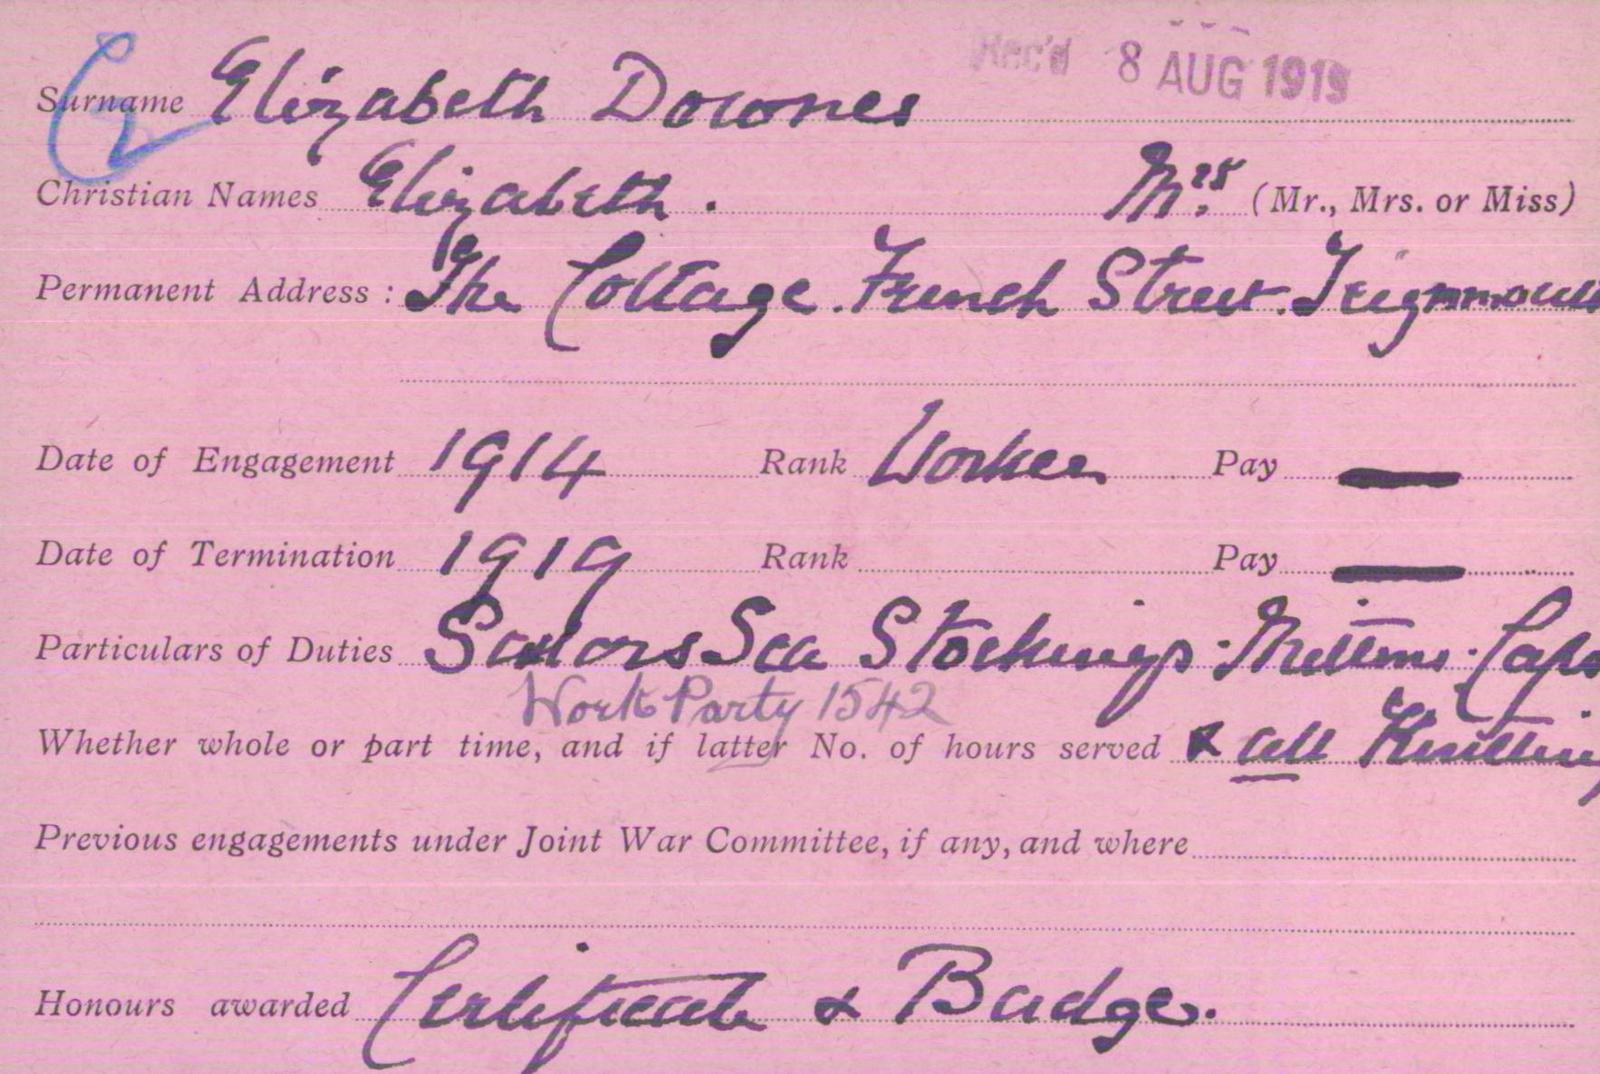 Rec'd 8 AUG 1919
Surname Elizabeth Downes
Christian Names Elizabeth. Mrs. (Mr., Mrs. or Miss)
Permanent Address: The Cottage. French Street. Teignmouth
Date of Engagement 1914 Rank Worker Pay —
Date of Termination 1919 Rank Pay —
Particulars of Duties Sailors Sea Stockings. Mittens. Caps
Work Party 1542
Whether whole or part time, and if latter No. of hours served & all Knitting
Previous engagements under Joint War Committee, if any, and where
Honours awarded Certificate & Badge.